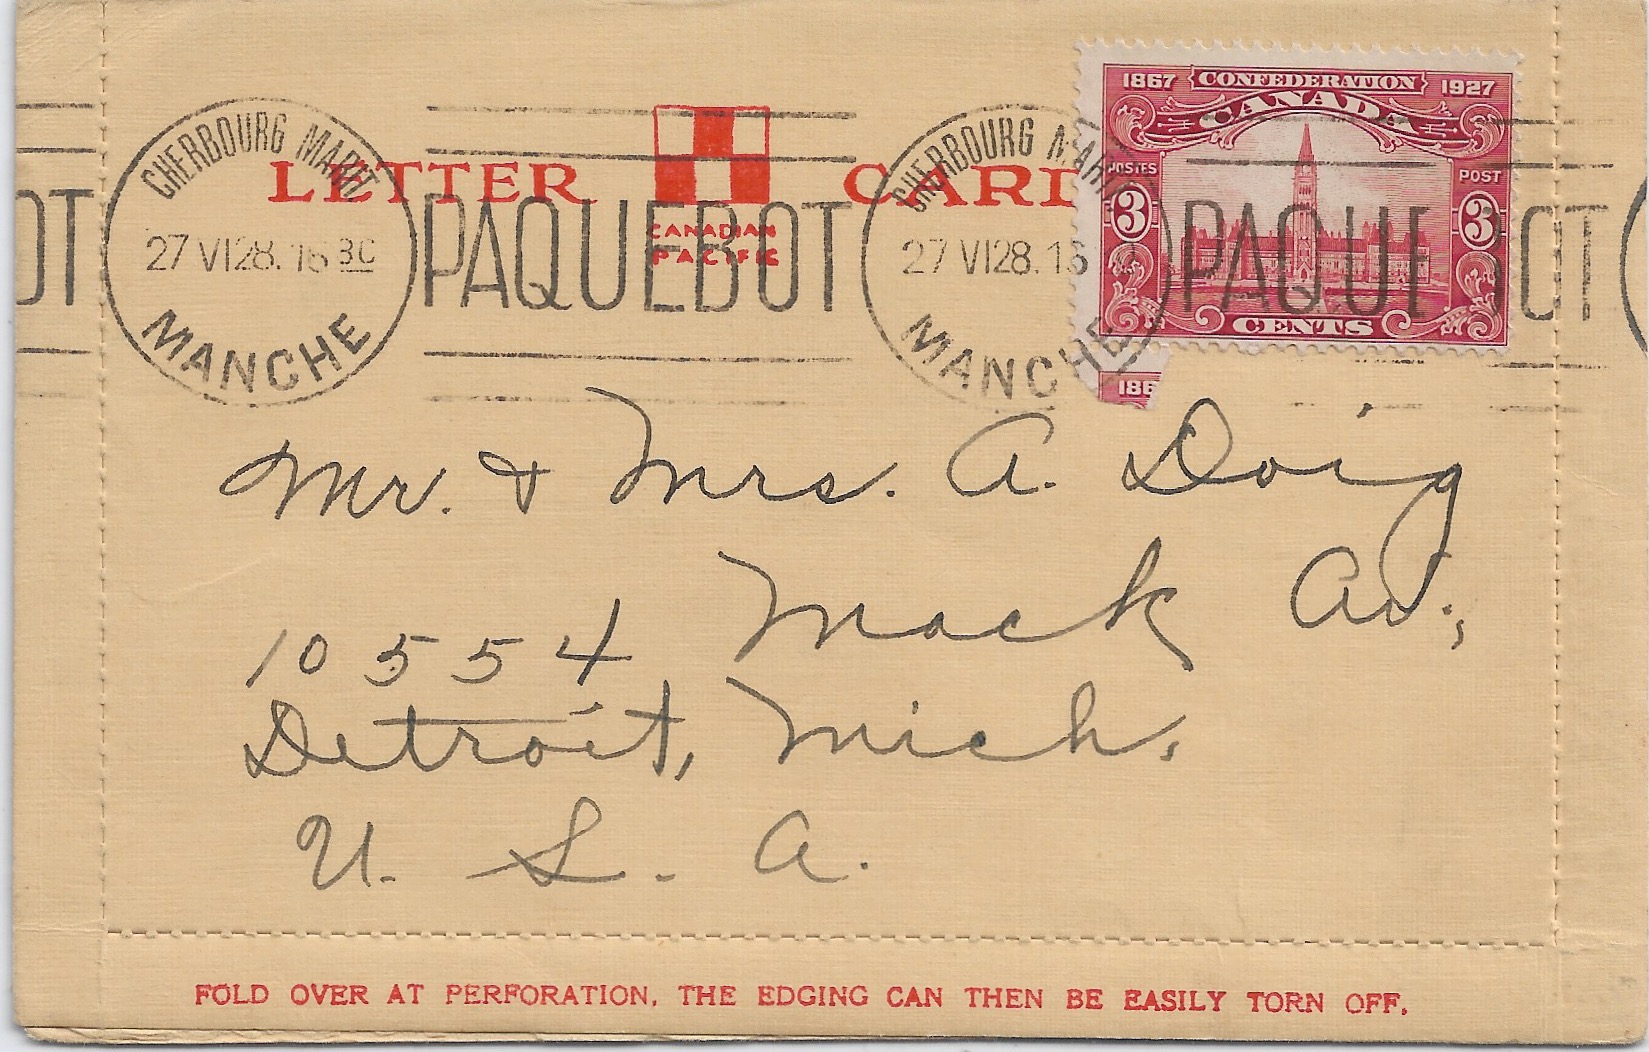 1867 CONFEDERATION 1927
CANADA
POSTES POST
3 3
CENTS
186
LETTER CARD
CANADIAN
PACIFIC
CHERBOURG MARIT
27 VI 28. 16 30
MANCHE
PAQUEBOT
CHERBOURG MARIT
27 VI 28. 16
MANCHE
PAQUEBOT
OT
Mr. & Mrs. A. Doig
10554 Mack Av.,
Detroit, Mich.
U. S. A.
FOLD OVER AT PERFORATION. THE EDGING CAN THEN BE EASILY TORN OFF.